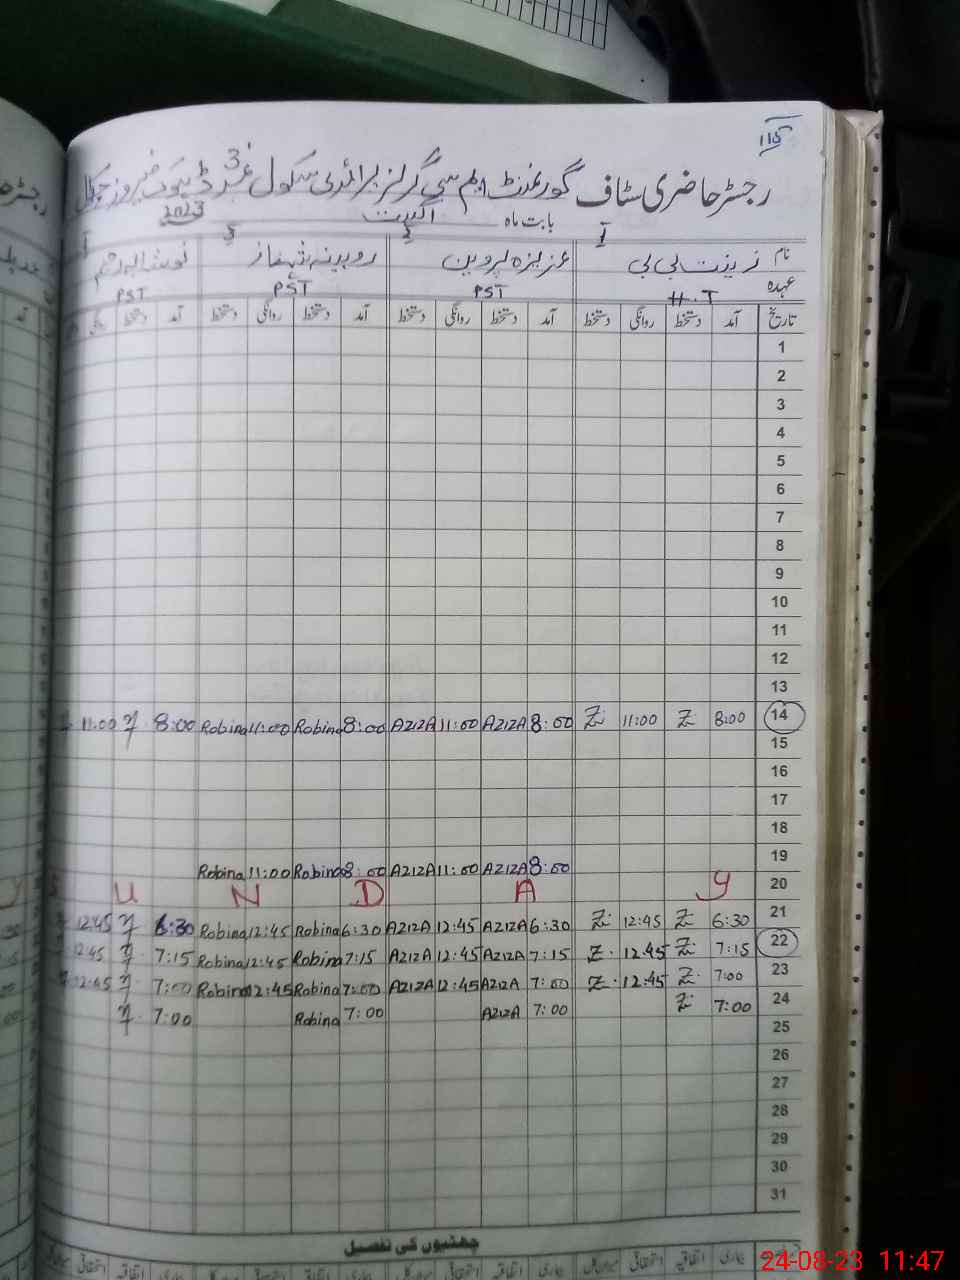 115
رجسٹر حاضری سٹاف گورنمنٹ ایم سی گرلز پرائمری سکول نمبر 3
بابت ماہ اگست 2023
1 2 3
نام زینت بی بی عزیزہ پروین روبینہ شہناز
عہدہ H.T PST PST PST
تاریخ آمد دستخط روانگی دستخط آمد دستخط روانگی دستخط آمد دستخط روانگی دستخط آمد دستخط
1
2
3
4
5
6
7
8
9
10
11
12
13
14 8:00 Z 11:00 Z 8:00 AZIZA 11:00 AZIZA 8:00 Robina 11:00 Robina 8:00 11:00
15
16
17
18
19 8:00 AZIZA 11:00 AZIZA 8:00 Robina 11:00 Robina
20 S U N D A Y
21 6:30 Z 12:45 Z 6:30 AZIZA 12:45 AZIZA 6:30 Robina 12:45 Robina 6:30 12:45
22 7:15 Z 12:45 Z 7:15 AZIZA 12:45 AZIZA 7:15 Robina 12:45 Robina 7:15 12:45
23 7:00 Z 12:45 Z 7:00 AZIZA 12:45 AZIZA 7:00 Robina 12:45 Robina 7:00 12:45
24 7:00 Z 7:00 AZIZA 7:00 Robina 7:00
25
26
27
28
29
30
31
چھٹیوں کی تفصیل
24-08-23 11:47